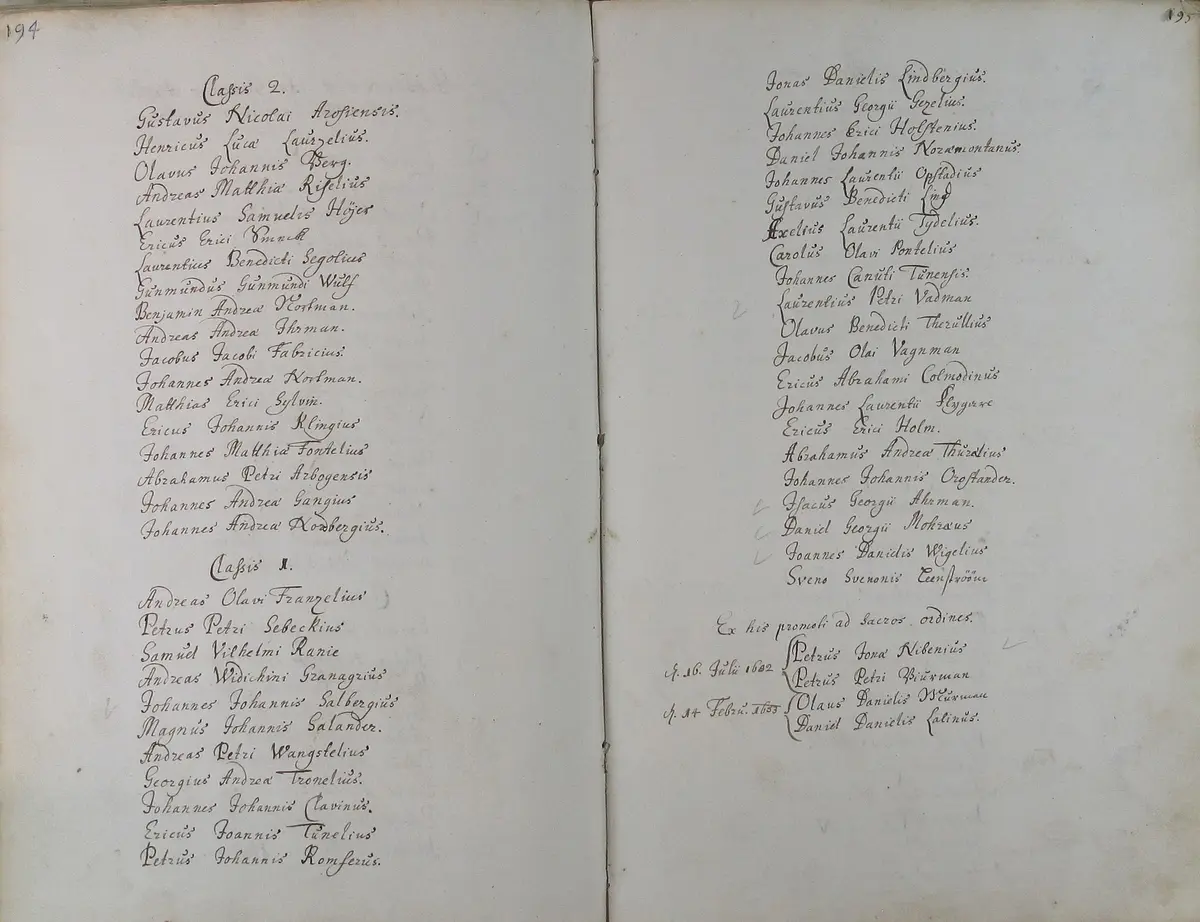 194
Classis 2.
Gustavus Nicolai Arosiensis.
Henricus Lucæ Laurzelius.
Olavus Johannis Berg.
Andreas Matthiæ Riselius
Laurentius Samuelis Höjer
Ericus Erici
Laurentius Benedicti Segolius
Gunmundus Gunmundi Wulf
Benjamin Andreæ Nortman.
Andreas Andreæ Ihrman.
Jacobus Jacobi Fabricius.
Johannes Andreæ Nortman.
Matthias Erici Sylvin.
Ericus Johannis Klingius
Johannes Matthiæ Fontelius
Abrahamus Petri Arbogensis
Johannes Andreæ Gangius
Johannes Andreæ Nordbergius.
Classis 1.
Andreas Olavi Franzelius
Petrus Petri Sebeckius
Samuel Vilhelmi Ranie
Andreas Widichini Granagrius
Johannes Johannis Salbergius
Magnus Johannis Salander.
Andreas Petri Wangstelius
Georgius Andreæ Tronelius.
Johannes Johannis Clavinus.
Ericus Joannis Tunelius
Petrus Johannis Romserus.
195
Jonas Danielis Lindbergius.
Laurentius Georgii Gezelius.
Johannes Erici Holstenius.
Daniel Johannis Noræmontanus.
Johannes Laurentii Opstadius
Gustavus Benedicti Ling
Axelius Laurentii Tydelius.
Carolus Olavi Pontelius
Johannes Canuti Tunensis.
Laurentius Petri Vadman
Olavus Benedicti Therullius
Jacobus Olai Vagnman
Ericus Abrahami Colmodinus
Johannes Laurentii Flygare
Ericus Erici Holm.
Abrahamus Andreæ Thurælius
Johannes Johannis Orostander.
Isacus Georgii Ahrman.
Daniel Georgii Mohræus
Joannes Danielis Wigelius
Sveno Svenonis Teenströöm
Ex his promoti ad sacros ordines.
d. 16. Julii 1682
Petrus Jonæ Nibenius
Petrus Petri Biurman
d. 14 Febru. 1683
Olaus Danielis Murman
Daniel Danielis Lalinus.